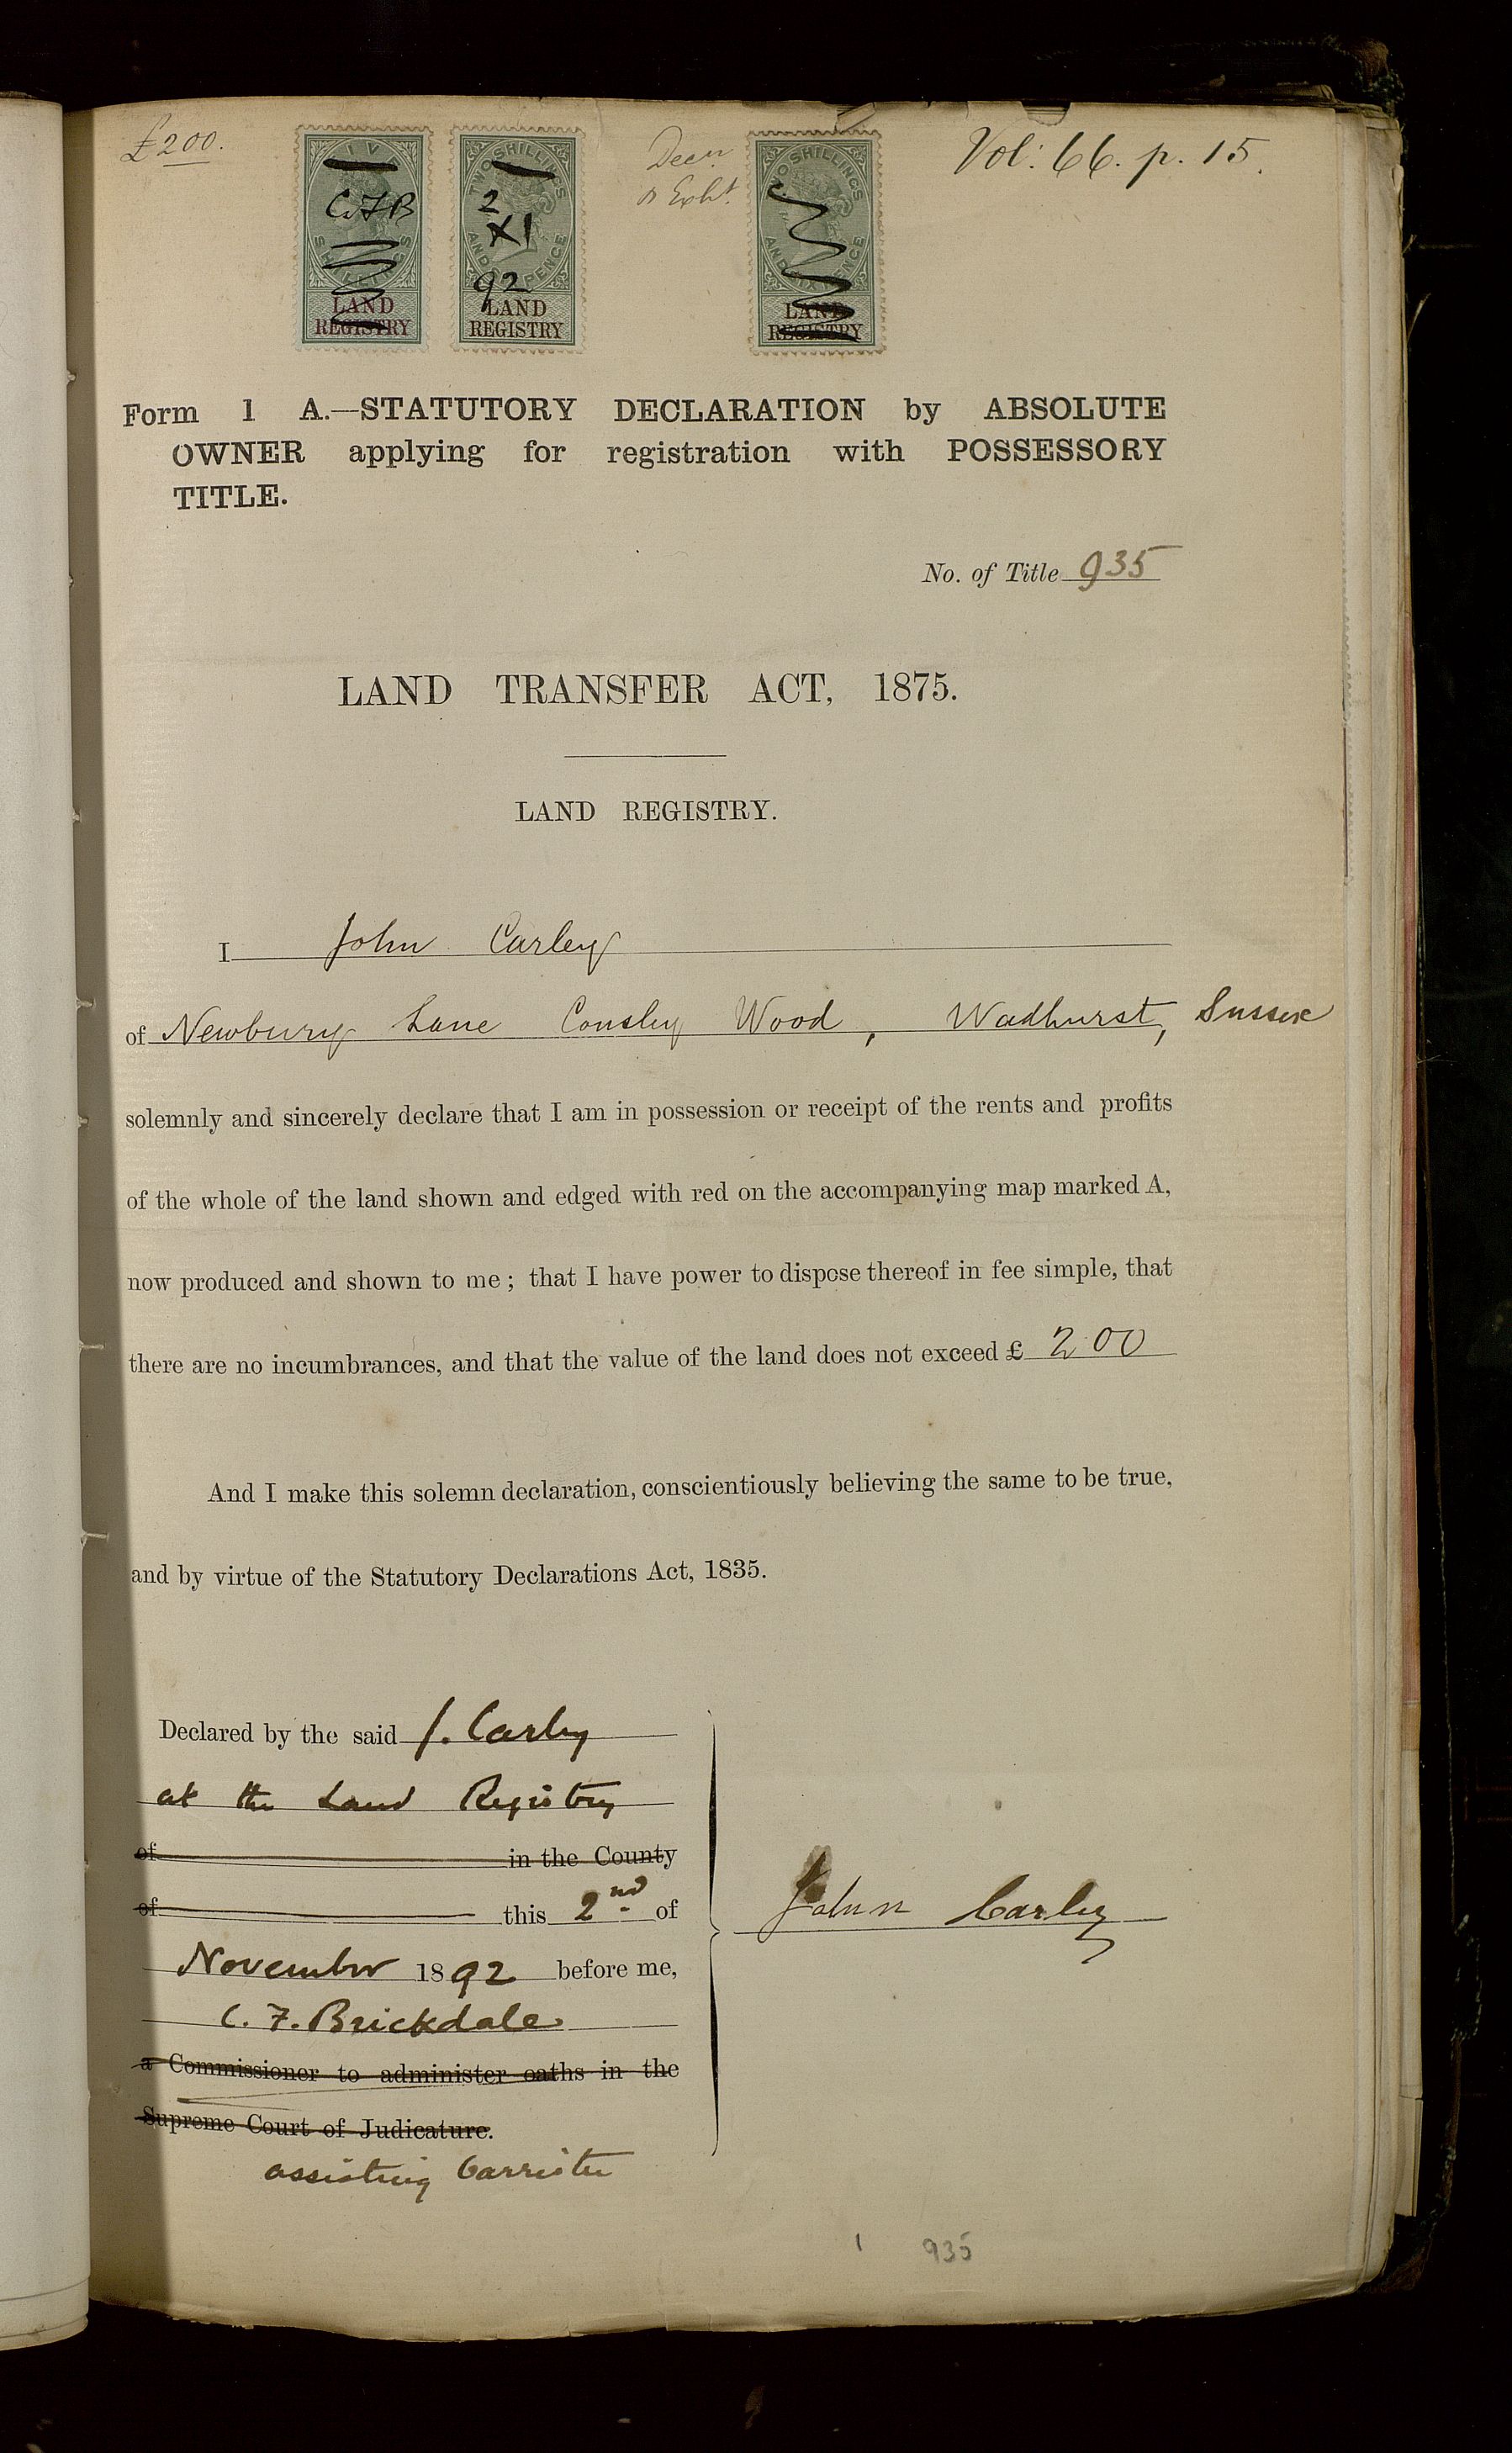 £200.
Decn
& Exht.
Vol: 66. p. 15.
FIVE
SHILLINGS
CFB
LAND
REGISTRY
TWO SHILLINGS
AND SIX PENCE
2
XI
92
LAND
REGISTRY
TWO SHILLINGS
AND SIX PENCE
LAND
REGISTRY
Form 1 A.—STATUTORY DECLARATION by ABSOLUTE
OWNER applying for registration with POSSESSORY
TITLE.
No. of Title 935
LAND TRANSFER ACT, 1875.
LAND REGISTRY.
I John Carley
of Newbury Lane Cousley Wood, Wadhurst, Sussex
solemnly and sincerely declare that I am in possession or receipt of the rents and profits
of the whole of the land shown and edged with red on the accompanying map marked A,
now produced and shown to me; that I have power to dispose thereof in fee simple, that
there are no incumbrances, and that the value of the land does not exceed £ 200
And I make this solemn declaration, conscientiously believing the same to be true,
and by virtue of the Statutory Declarations Act, 1835.
Declared by the said J. Carley
at the Land Registry
of in the County
of this 2nd of
November 1892 before me,
C. F. Brickdale
a Commissioner to administer oaths in the
Supreme Court of Judicature.
assisting barrister
John Carley
1 935